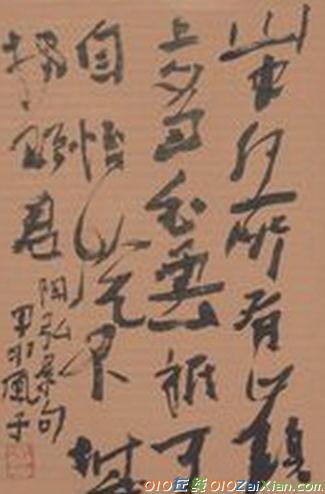 山中何所有嶺
上多白雲祇可
自怡悦不堪
持贈君
陶弘景句
010在线 010ZaiXian.com